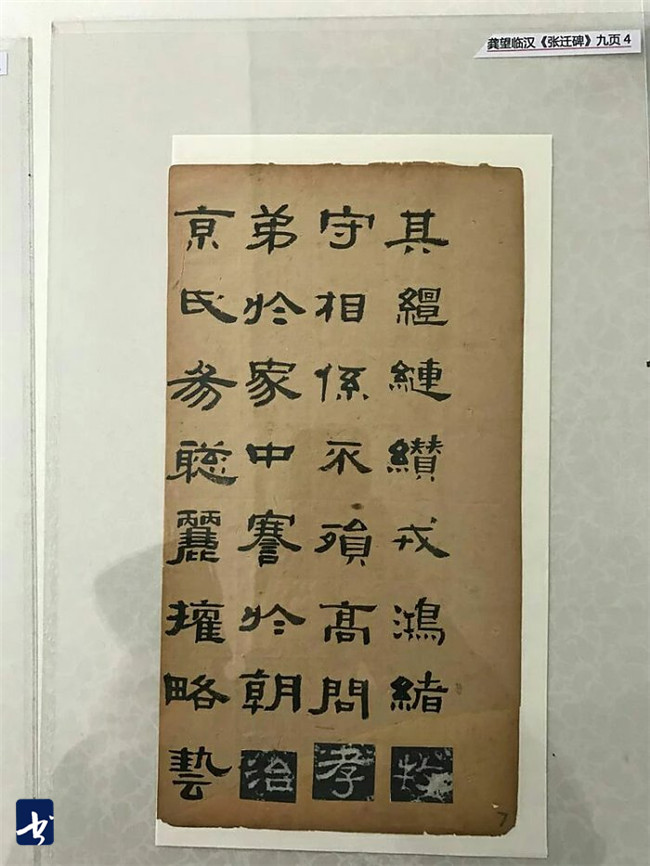 龚望临汉《张迁碑》九页 4
其繵縺纘戎鴻緒牧
守相係不殞高問孝
弟於家中謇於朝治
京氏易聰麗權略藝
7